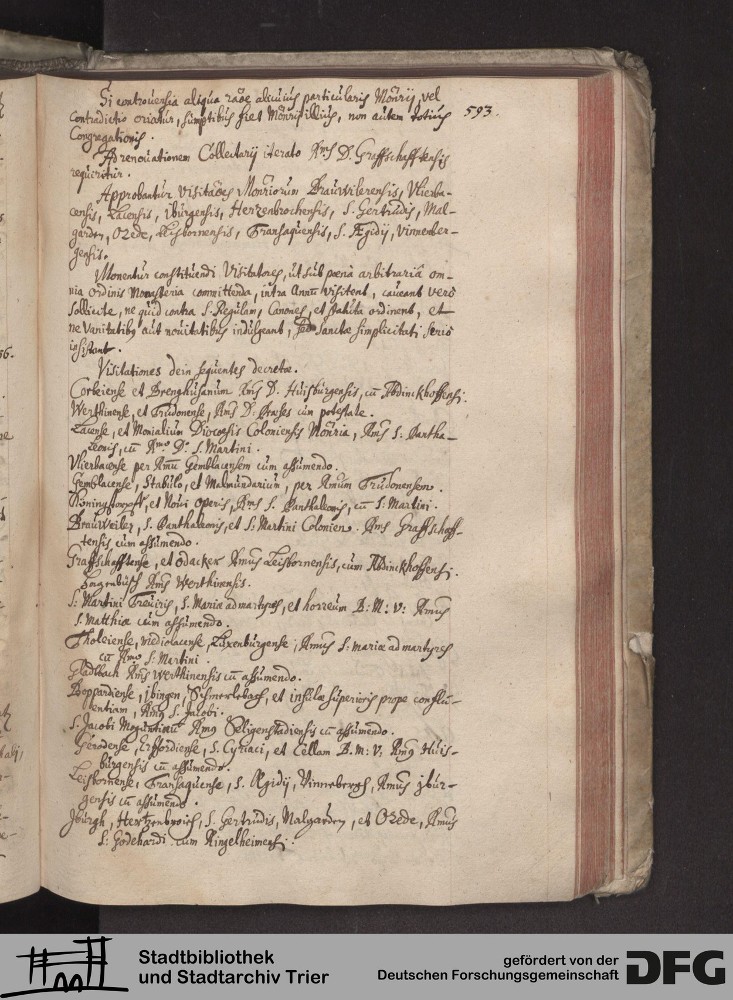 593.
Si controuersia aliqua raõe alicuius particularis Monrij, vel
contradictio oriatur, sumptibus fiet Monrij illius, non autem totius
Congregationis.
Ad renouationem Collectarij iterato Rms D. Graffschafftensis
requiritur.
Approbantur visitaões Monriorum Brauwilerensis, Vlierba-
censis, Lacensis, Iburgensis, Hertzenbrochensis, S. Gertrudis, Mal-
garden, Ozede, Lisbornensis, Transaquensis, S. Ægidij, Vinnenber-
gensis.
Monentur constituendi Visitatores, ut sub poena arbitraria om-
nia ordinis Monasteria committenda, intra Annu visitent, caueant vero
sollicite, ne quid contra S. Regulam, Canones, et statuta ordinent, et
ne vanitatibus aut nouitatibus indulgeant, sed sanctæ simplicitati serio
insistant.
Visitationes dein sequentes decretæ.
Corbeiense et Brenghusanum Rms D. Huisburgensis, cu Abdinckhoffensi.
Werthinense, et Trudonense, Rms D. Præses cum potestate.
Lacense, et Monialium Dioecesis Coloniensis Monria, Rms S. Pantha-
leonis, cu Rmo Do S. Martini.
Vlierbacense per Rmu Gemblacensem cum assumendo.
Gemblacense, Stabulo, et Malmundarium, per Rmum Trudonensem.
et Noui operis, Rms S. Panthaleonis, cu S. Martini.
Brauweiler, S. Panthaleonis, et S. Martini Colonien. Rms Graffschoff-
tensis cum assumendo.
Graffschafftense, et Odacker Rmus Leisbornensis, cum Abdinckhoffensi.
Rms Werthinensis.
S. Martini Treuiris, S. Mariæ ad martyres, et horreum B: M: V: Rmus
S. Matthiæ cum assumendo.
Tholeiense, Mediolacense, Luxenburgense, Rmus S. Mariæ ad martyres
cu Rmo S. Martini.
Gladbach Rms Werthinensis cu assumendo.
Boppardiense, Ibingen, et insulæ superioris prope conflu-
entiam, Rms S. Jacobi.
S. Jacobi Moguntiæ Rms Seligenstadiensis cu assumendo.
Gerodense, Erffordiense, S. Cyriaci, et Cellam B. M: V: Rms Huis-
burgensis cu assumendo.
Leisbornense, Transaquense, S. Ægidij, Vinnebergh, Rmus Jbur-
gensis cu assumendo.
Jburgh, Hertzenbroich, S. Gertrudis, Malgarden, et Ozede, Rmus
S: Godehardi cum Ringelheimensi.
Stadtbibliothek
und Stadtarchiv Trier
gefördert von der
Deutschen Forschungsgemeinschaft
DFG